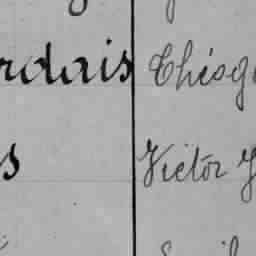 rdais Chésg
s Victor J